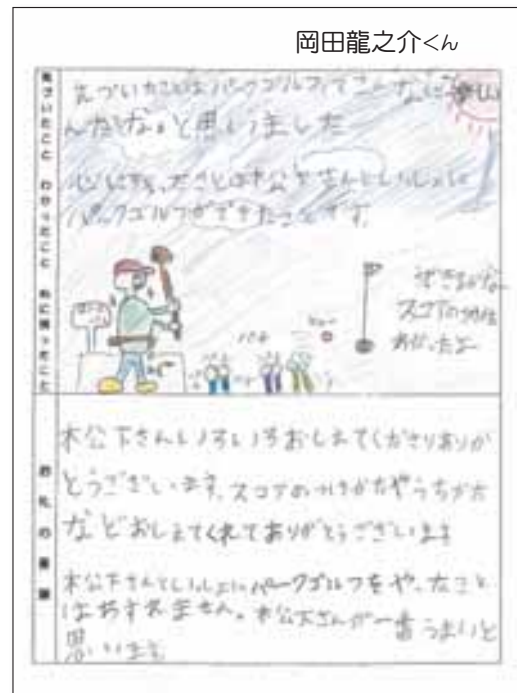 岡田龍之介くん
気づいたこと わかったこと 心に残ったこと
気づいたことはパークゴルフってこんなに楽しい
んだなぁと思いました
心にのこったことは木公下さんといっしょに
パークゴルフができたことです。
スコアのつけ
お礼の言葉
木公下さんいろいろおしえてくださりありが
とうございます。スコアのつけかたやうちかた
などおしえてくれてありがとうございます
木公下さんといっしょにパークゴルフをやったこと
はわすれません。木公下さんが一番うまいと
思います